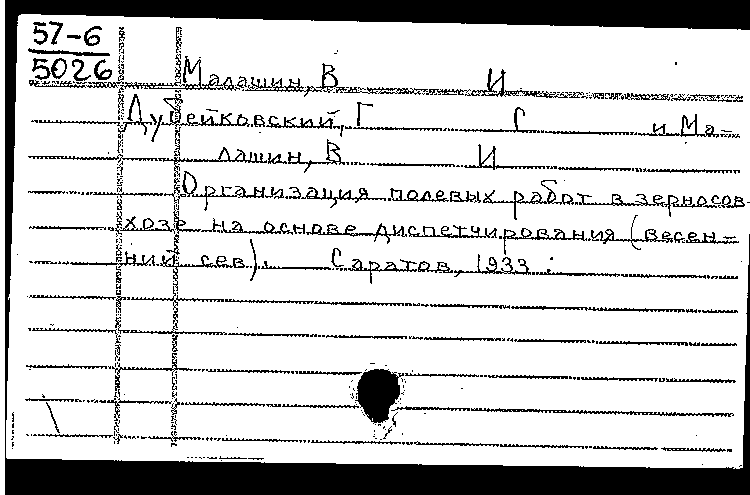 57-6
5026
Малашин, В И
Дубейковский, Г Г и Ма-
лашин, В И
Организация полевых работ в зерносов-
хозе на основе диспетчирования (весен-
ний сев). Саратов, 1933.